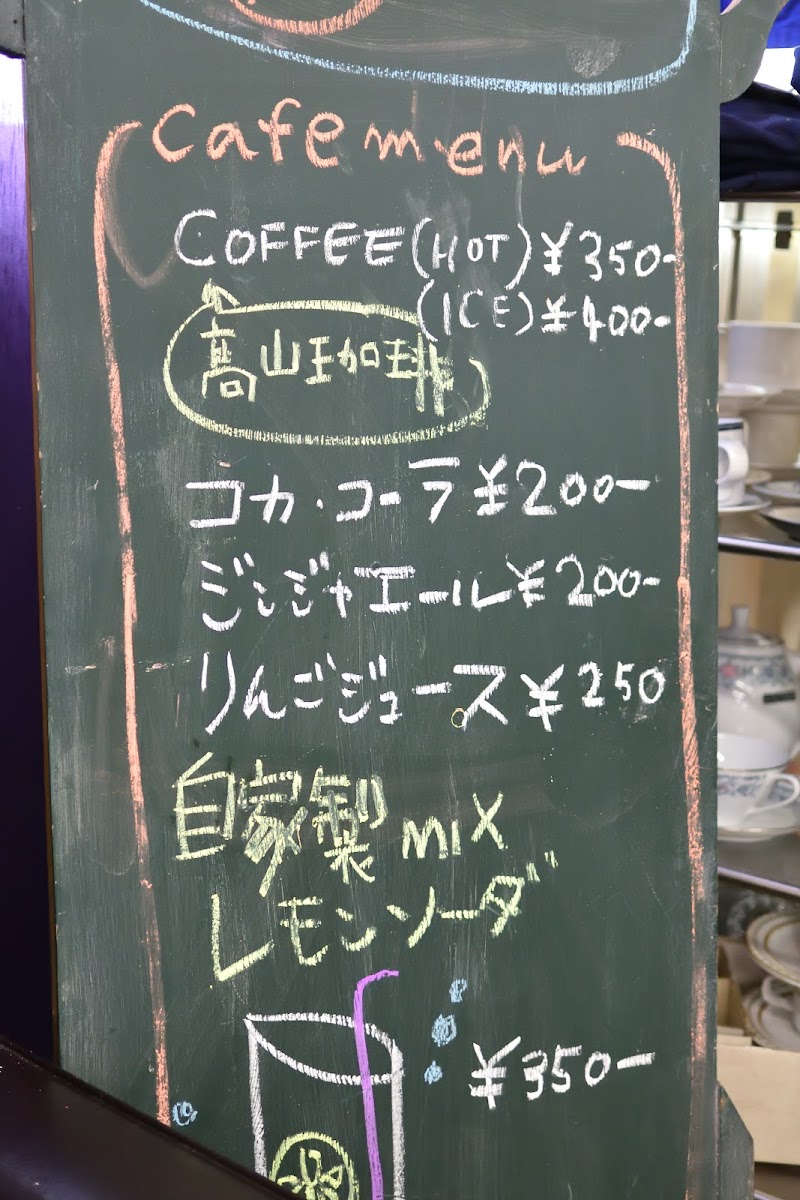 cafe menu
COFFEE (HOT) ¥350-
(ICE) ¥400-
高山珈琲
コカ・コーラ ¥200-
ジンジャエール ¥200-
りんごジュース ¥250
自家製 mIX
レモンソーダ
¥350-